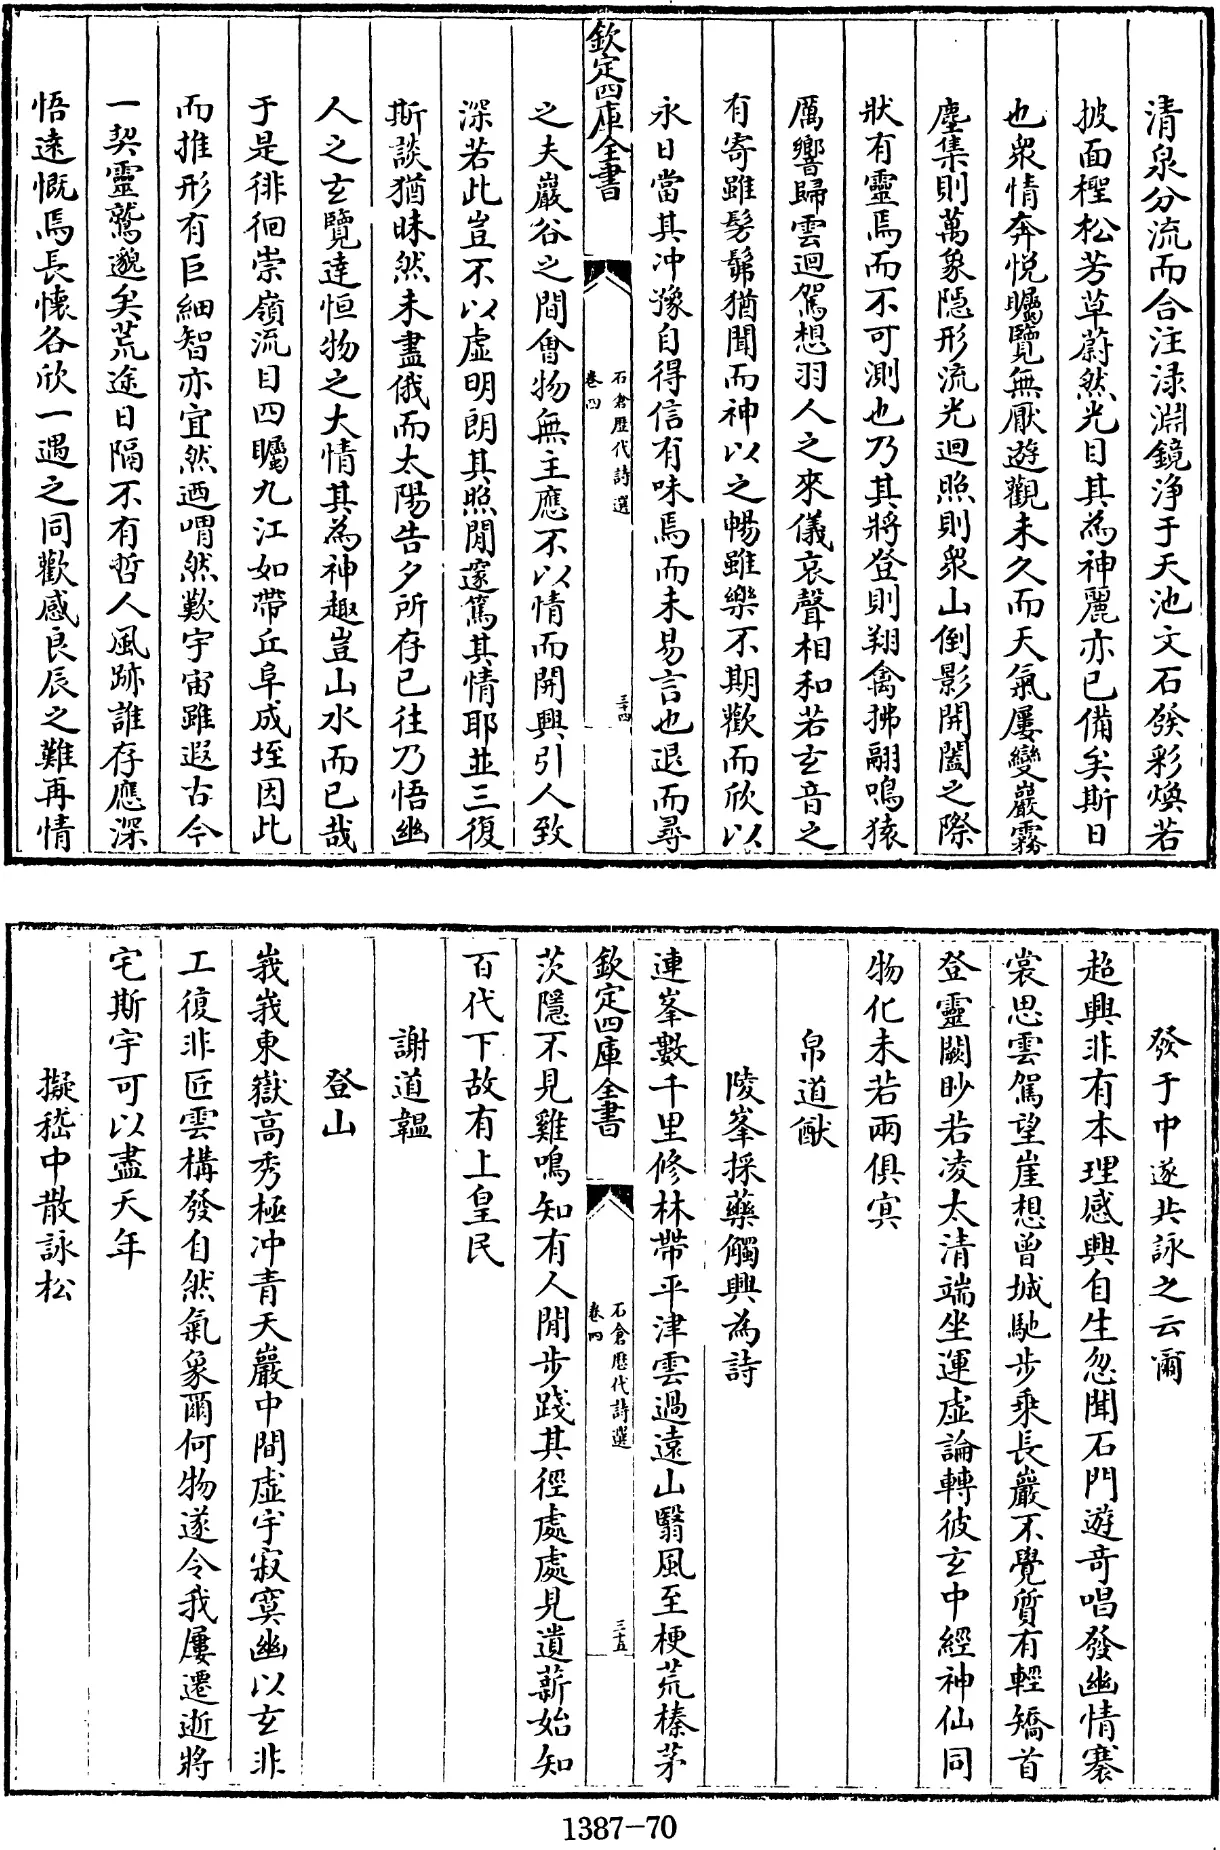 清泉分流而合注渌淵鏡淨于天池文石發彩煥若
披面檉松芳草蔚然光目其為神麗亦已備矣斯日
也衆情奔悦矚覽無厭遊觀未久而天氣屢變巖霧
塵集則萬象隱形流光迴照則衆山倒影開闔之際
狀有靈焉而不可測也乃其將登則翔禽拂翮鳴猿
厲響歸雲迴駕想羽人之來儀哀聲相和若玄音之
有寄雖髣髴猶聞而神以之暢雖樂不期歡而欣以
永日當其冲豫自得信有味焉而未易言也退而尋
欽定四庫全書
石倉歷代詩選
卷四
三十四
之夫巖谷之間會物無主應不以情而開興引人致
深若此豈不以虛明朗其照閒邃篤其情耶並三復
斯談猶昧然未盡俄而太陽告夕所存已往乃悟幽
人之玄覽達恒物之大情其為神趣豈山水而已哉
于是徘徊崇嶺流目四矚九江如帶丘阜成垤因此
而推形有巨細智亦宜然迺喟然歎宇宙雖遐古今
一契靈鷲邈矣荒途日隔不有哲人風跡誰存應深
悟遠慨焉長懷各欣一遇之同歡感良辰之難再情
發于中遂共詠之云爾
超興非有本理感興自生忽聞石門遊奇唱發幽情褰
裳思雲駕望崖想曾城馳步乘長巖不覺質有輕矯首
登靈闕眇若凌太清端坐運虛論轉彼玄中經神仙同
物化未若兩俱冥
帛道猷
陵峯採藥觸興為詩
連峯數千里修林帶平津雲過遠山翳風至梗荒榛茅
欽定四庫全書
石倉歷代詩選
卷四
三十五
茨隱不見雞鳴知有人閒步踐其徑處處見遺薪始知
百代下故有上皇民
謝道韞
登山
峩峩東嶽高秀極冲青天巖中間虛宇寂寞幽以玄非
工復非匠雲構發自然氣象爾何物遂令我屢遷逝將
宅斯宇可以盡天年
擬嵇中散詠松
1387-70